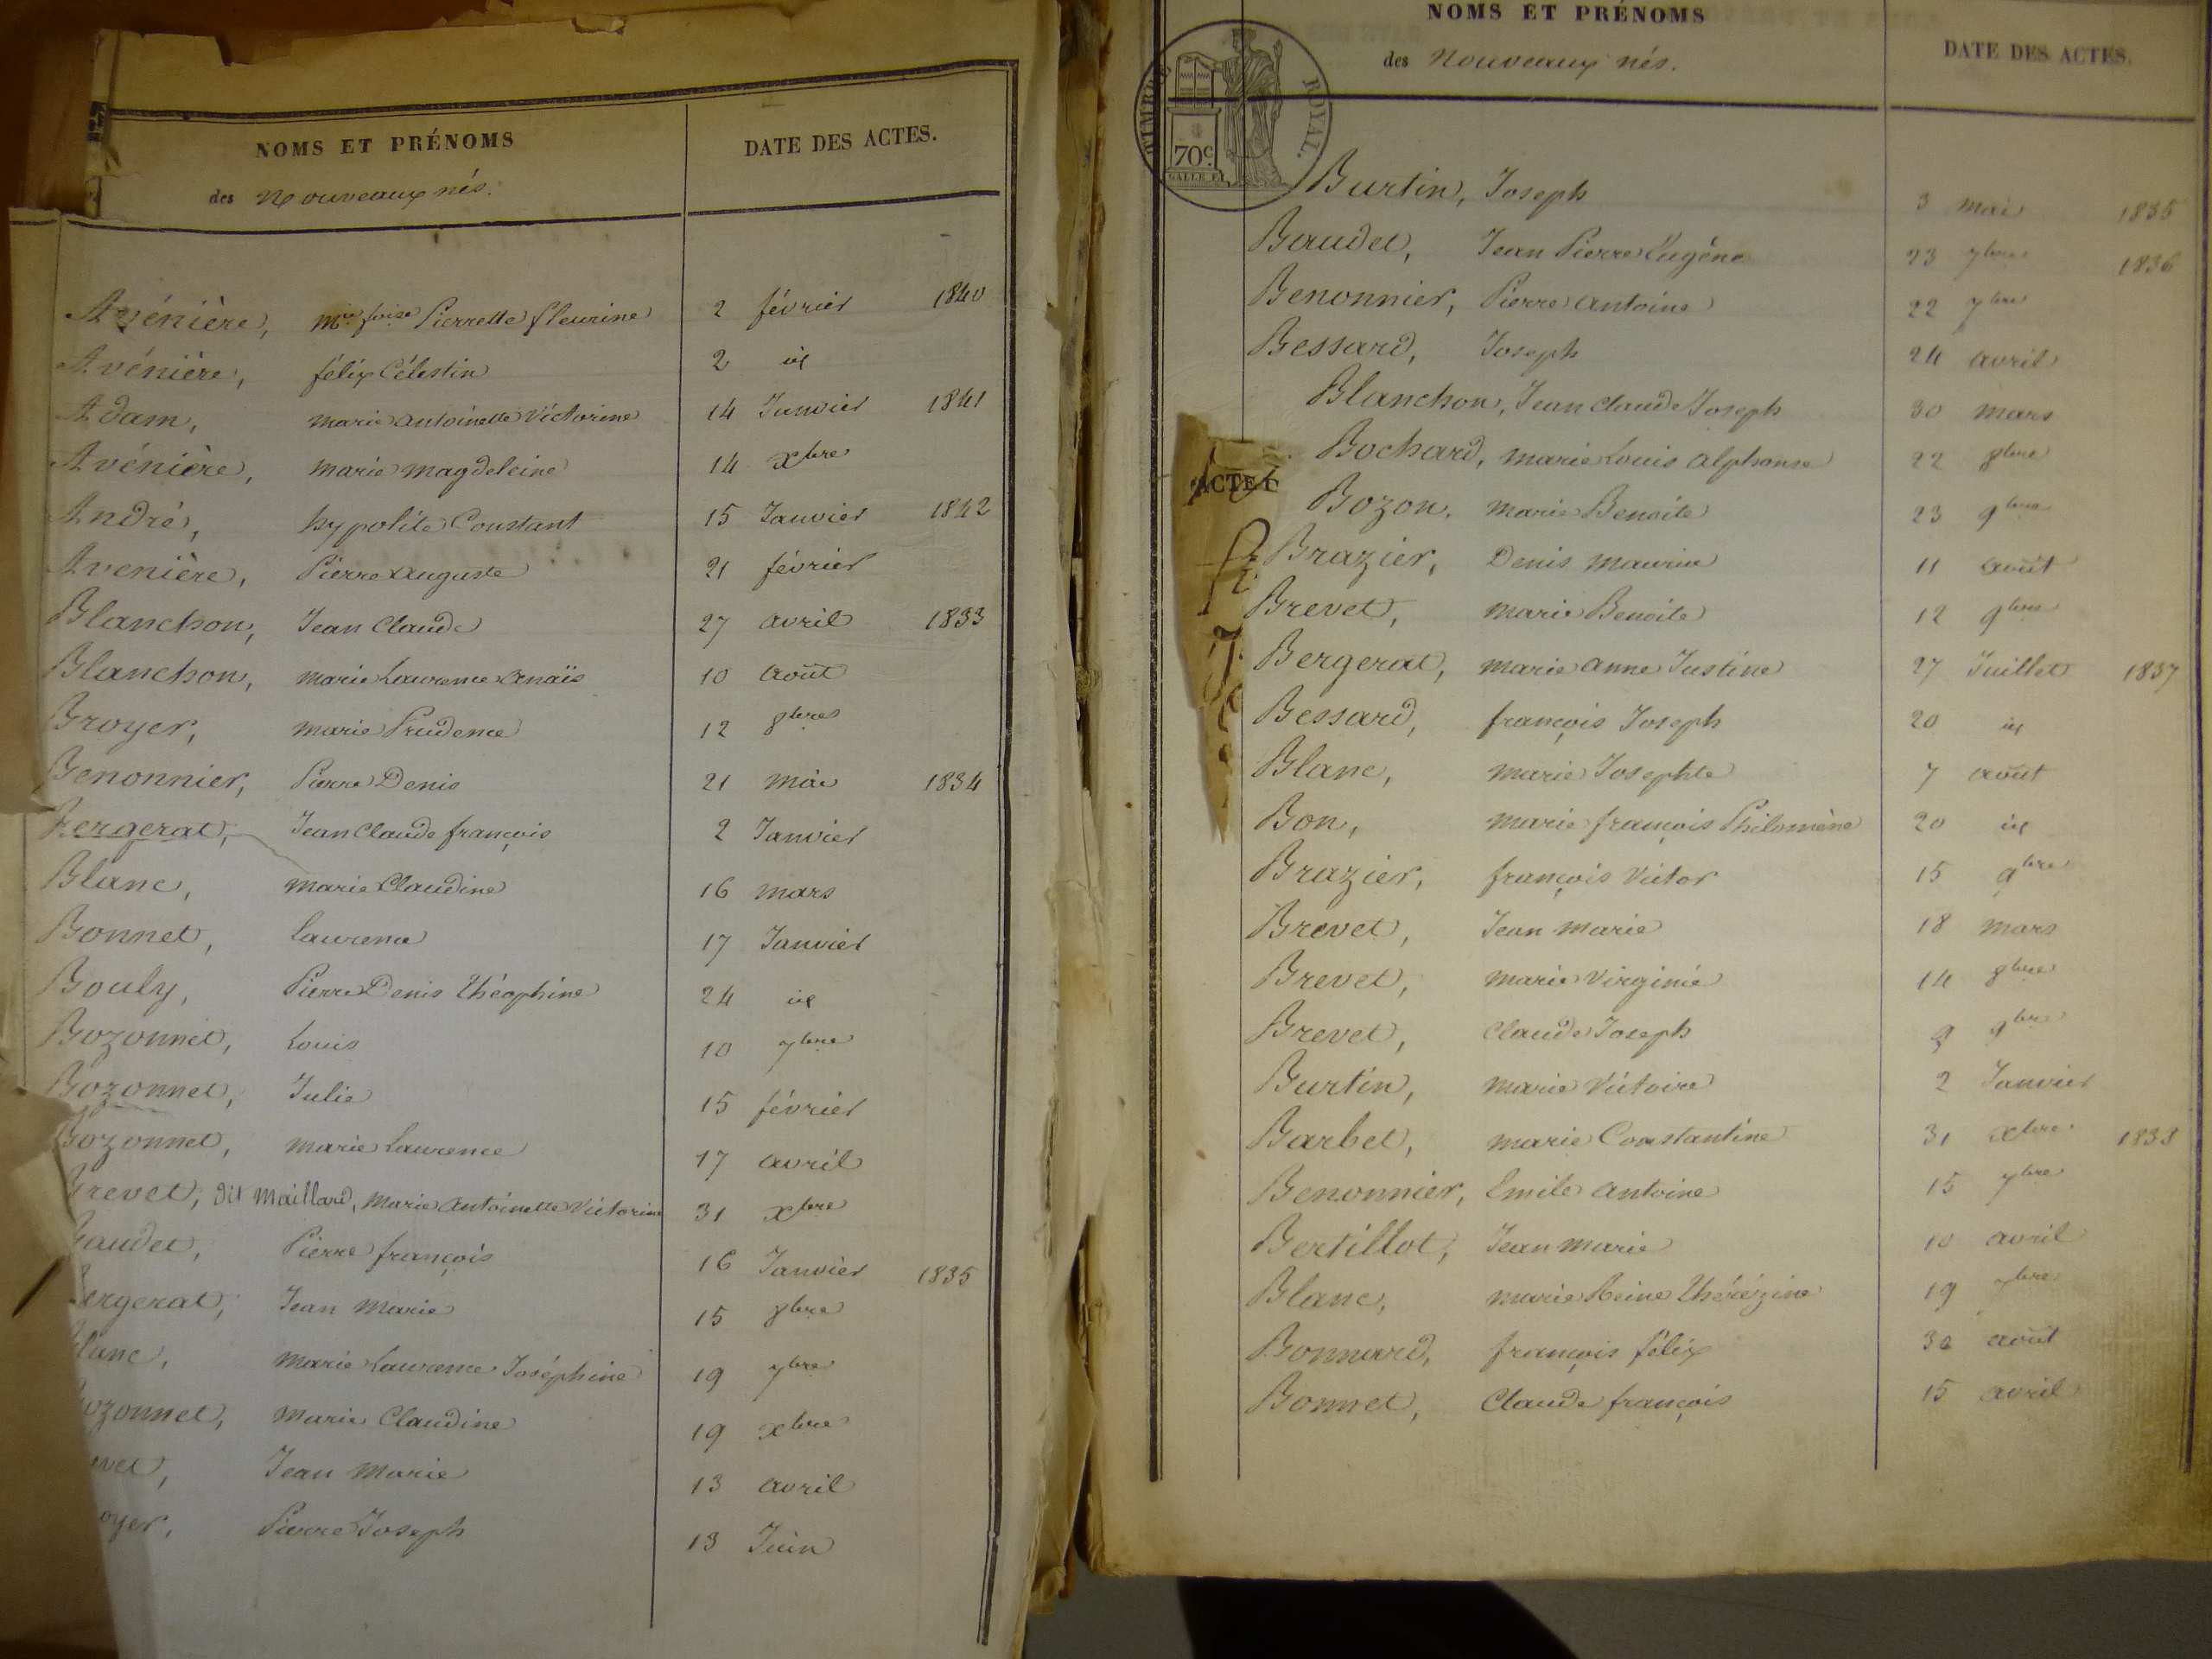 NOMS ET PRÉNOMS
des Nouveaux nés.
DATE DES ACTES.
Avénière, Mie foise Pierrette fleurine 2 février 1840
Avénière, félix Célestin 2 id
Adam, marie antoinette Victorine 14 Janvier 1841
Avénière, marie magdeleine 14 Xbre
André, hypolite Constant 15 Janvier 1842
Avenière, Pierre auguste 21 février
Blanchon, Jean Claude 27 avril 1833
Blanchon, marie Laurence anaïs 10 août
Broyer, marie Prudence 12 8bre
Benonnier, Pierre Denis 21 mai 1834
Bergerat, Jean Claude françois 2 Janvier
Blanc, marie Claudine 16 mars
Bonnet, laurence 17 Janvier
Bouly, Pierre Denis théophine 24 id
Bozonnet, Louis 10 7bre
Bozonnet, Julie 15 février
Bozonnet, marie laurence 17 avril
Brevet, dit Maillard, Marie antoinette Victorine 31 Xbre
audet, Pierre françois 16 Janvier 1835
ergerat, Jean marie 15 8bre
lanc, marie Laurence Joséphine 19 7bre
ozonnet, marie Claudine 19 Xbre
vet, Jean marie 13 avril
oyer, Pierre Joseph 13 Juin
NOMS ET PRÉNOMS
des Nouveaux nés.
DATE DES ACTES.
TIMBRE ROYAL.
70c.
Burtin, Joseph 3 mai 1835
Baudet, Jean Pierre Eugène 23 7bre 1836
Benonnier, Pierre antoine 22 7bre
Bessard, Joseph 24 avril
Blanchon, Jean claude Joseph 30 mars
Bochard, marie Louis alphonse 22 8bre
ACTE
Bozon, marie Benoite 23 9bre
Brazier, Denis maurice 11 août
Brevet, marie Benoite 12 9bre
Bergerat, marie anne Justine 27 Juillet 1837
Bessard, françois Joseph 20 id
Blanc, marie Josephte 7 août
Bon, marie françois Philomène 20 id
Brazier, françois Victor 15 9bre
Brevet, Jean marie 18 mars
Brevet, marie Virginie 14 8bre
Brevet, Claude Joseph 9 9bre
Burtin, marie Victoire 2 Janvier
Barbet, marie Constantine 31 Xbre 1838
Benonnier, Emile antoine 15 7bre
Bertillot, Jean marie 10 avril
Blanc, marie Reine thérézine 19 7bre
Bonnard, françois félix 30 août
Bonnet, Claude françois 15 avril